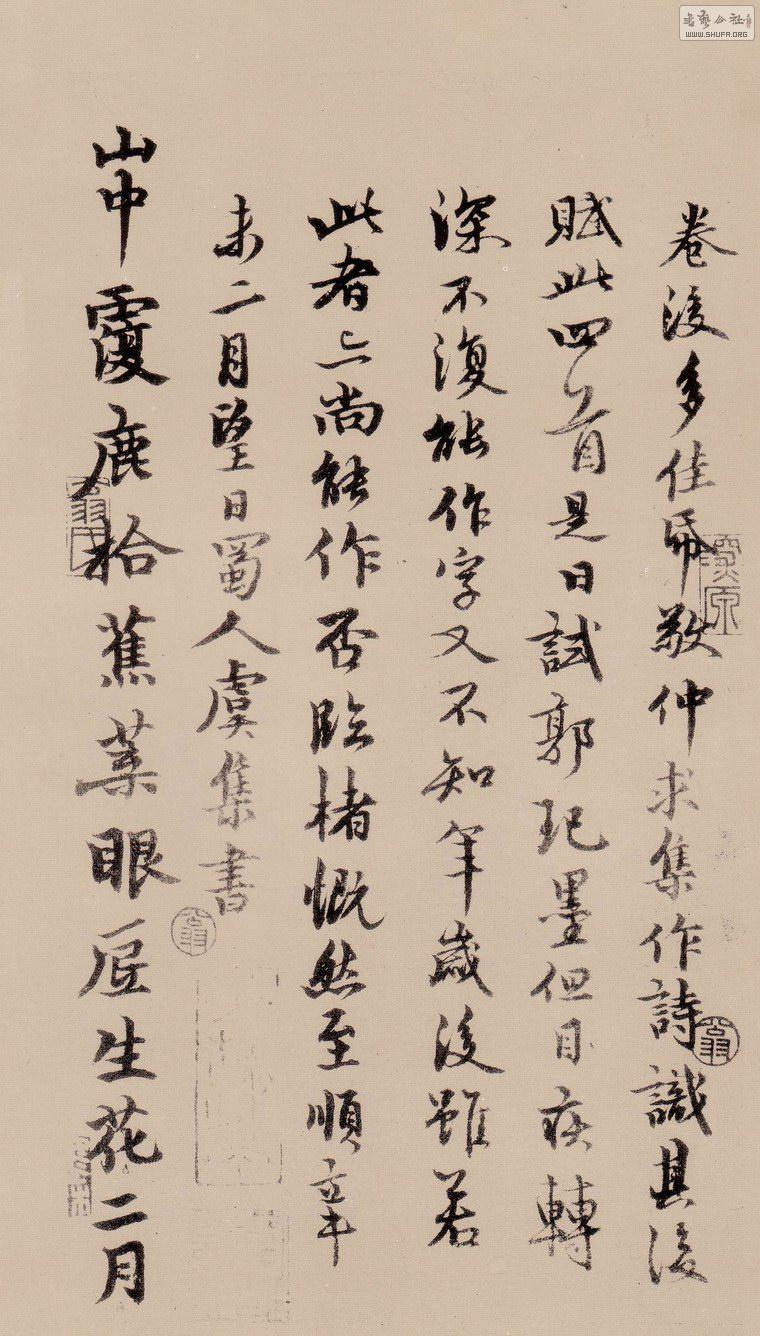 卷後多佳帋敬仲求集作詩識其後
賦此四首是日試郭玘墨但目疾轉
深不復能作字又不知年歲後雖若
此者亦尚能作否臨楮慨然至順辛
未二月望日蜀人虞集書
山中覆鹿拾蕉葉眼底生花二月
WWW.SHUFA.ORG